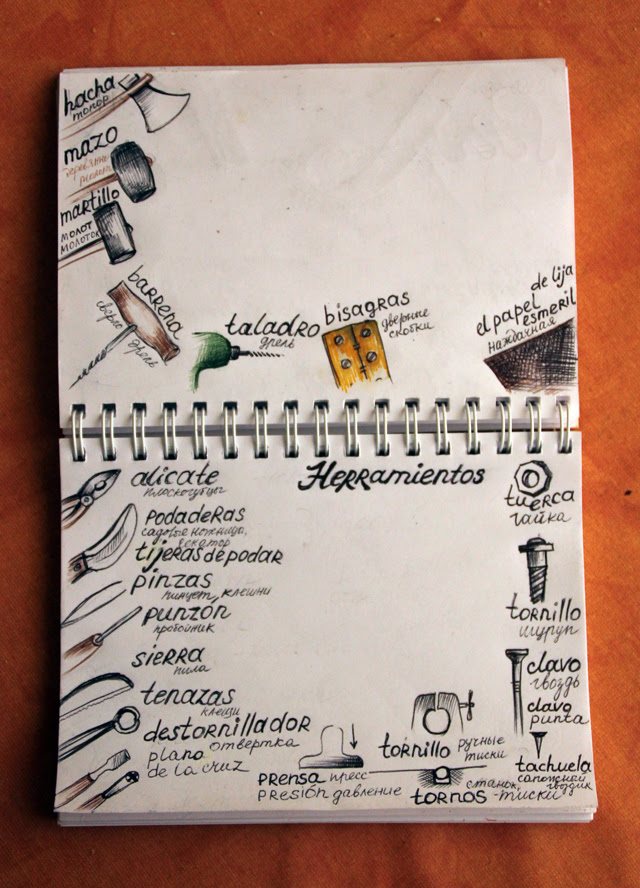 hacha
топор
mazo
дерев'янн
молот
martillo
молот
молоток
barrena
сверло
дрель
taladro
дрель
bisagras
дверные
скобки
de lija
el papel esmeril
наждачная
Herramientos
alicate
плоскогубцы
podaderas
садовые ножницы,
секатор
tijeras de podar
pinzas
пинцет, клешни
punzón
пробойник
sierra
пила
tenazas
клещи
destornillador
отвертка
plano
de la cruz
prensa пресс
presión давление
tornillo ручные
тиски
tornos станок,
-тиски
tuerca
гайка
tornillo
шуруп
clavo
гвоздь
clavo
punta
tachuela
сапожный
гвоздик